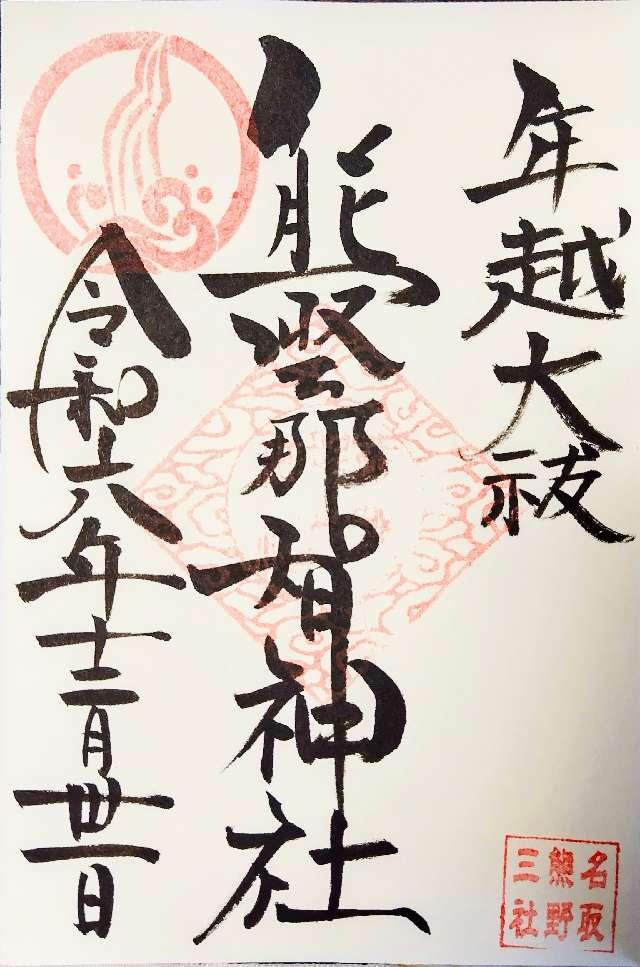 年越大祓
熊野那智神社
令和六年十二月丗一日
名取
熊野
三社